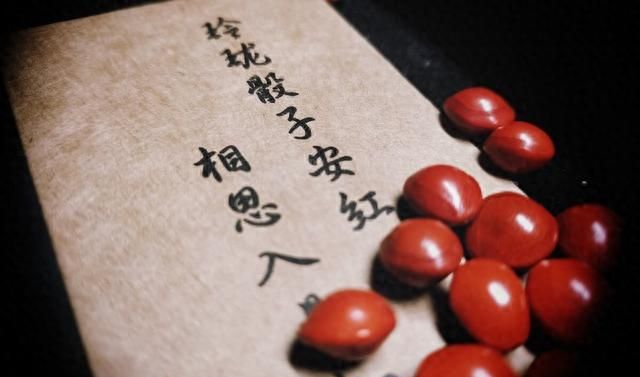 玲珑骰子安红
相思入